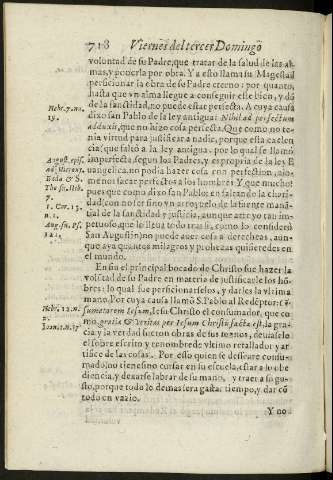 718 Viernes del tercer Domingo
voluntad de su Padre, que tratar de la salud de las al-
mas, y ponerla por obra. Y a esto llama su Magestad
perficionar la obra de su Padre eterno: por quanto,
hasta que vn alma llegue a conseguir este bien, y dõ
de la santidad, no puede estar perfecta. A cuya causa
Hebr. 7. n. dixo san Pablo de la ley antigua: Nihil ad perfectum
19. adduxit, que no hizo cosa perfecta. Que como no te-
nia virtud para justificar a nadie, porque esta excelen-
cia (que faltò a la ley antigua, por lo qual se llamò
August. epist. imperfecta, segun los Padres, y es propria de la ley E-
ad Hieron. uangelica, no podia hazer cosa con perfection, alo-
Beda & S. menos sacar perfectos a los hombres: Y que mucho?
Tho. sic. Heb. pues que como dixo san Pablo: en faltando la chari-
7. dad, con no ser sino vn arroyuelo de la fuente manã-
1. Cor. 13. tial de la santidad y justicia, aunque arroyo tan im-
n. 1. petuoso, que se lleua todo tras si, como lo considerò
Aug. su. Ps. San Augustin) no puede auer cosa a derechas, aun-
121. que aya quantos milagros y prohezas quisieredes en
el mundo.
En fin el principal bocado de Christo fue hazer la
volũtad de su Padre en materia de justificarle los hõ-
bres: lo qual fue perficionarselos, y darles la vltima
mano. Por cuya causa llamò S. Pablo al Redẽptor: Cõ-
Hebr. 12. n. sumatorem Iesum, Iesu Christo el consumador, que co
2. mo, gratia & veritas per Iesum Christũ facta est, la gra-
Ioann. 1. n. 17 cia y la verdad fueron obras de sus manos, deuiasele
el sobre escrito y renombre de vltimo retallador y ar-
tifice de las cosas. Por esso quien se desseare consu-
mado, no tiene sino cursar en su escuela, estar a su obe
diencia, y dexarse labrar de su mano, y traer a su gus-
to, porque todo lo demas sera gastar tiempo, y dar cõ
todo en vazio.
Y no